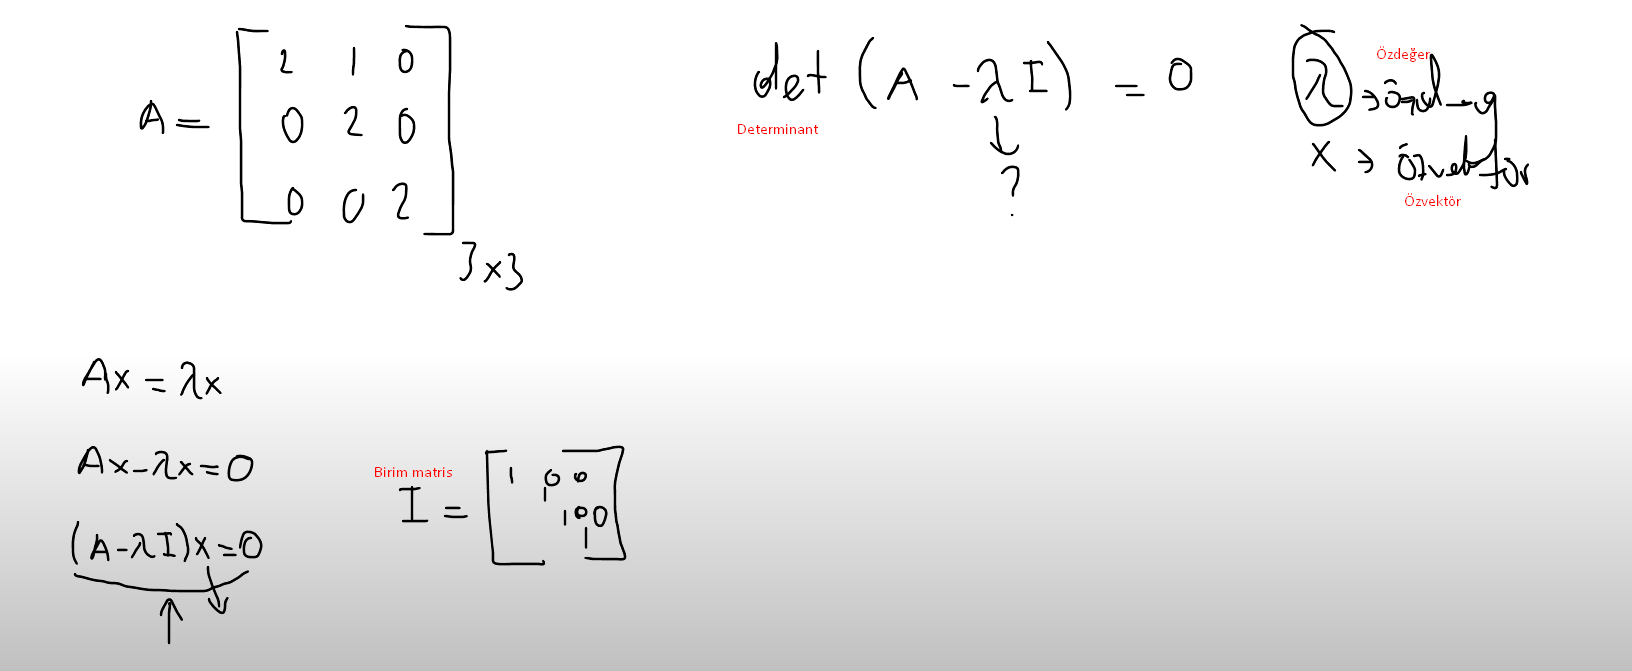 A = [ 2 1 0
0 2 0
0 0 2 ] 3x3
det (A - λI) = 0
Determinant
?
λ → özdeğ
Özdeğer
x → özvektör
Özvektör
Ax = λx
Ax - λx = 0
(A - λI)x = 0
Birim matris
I = [ 1 0 0
1 0 0
1 ]